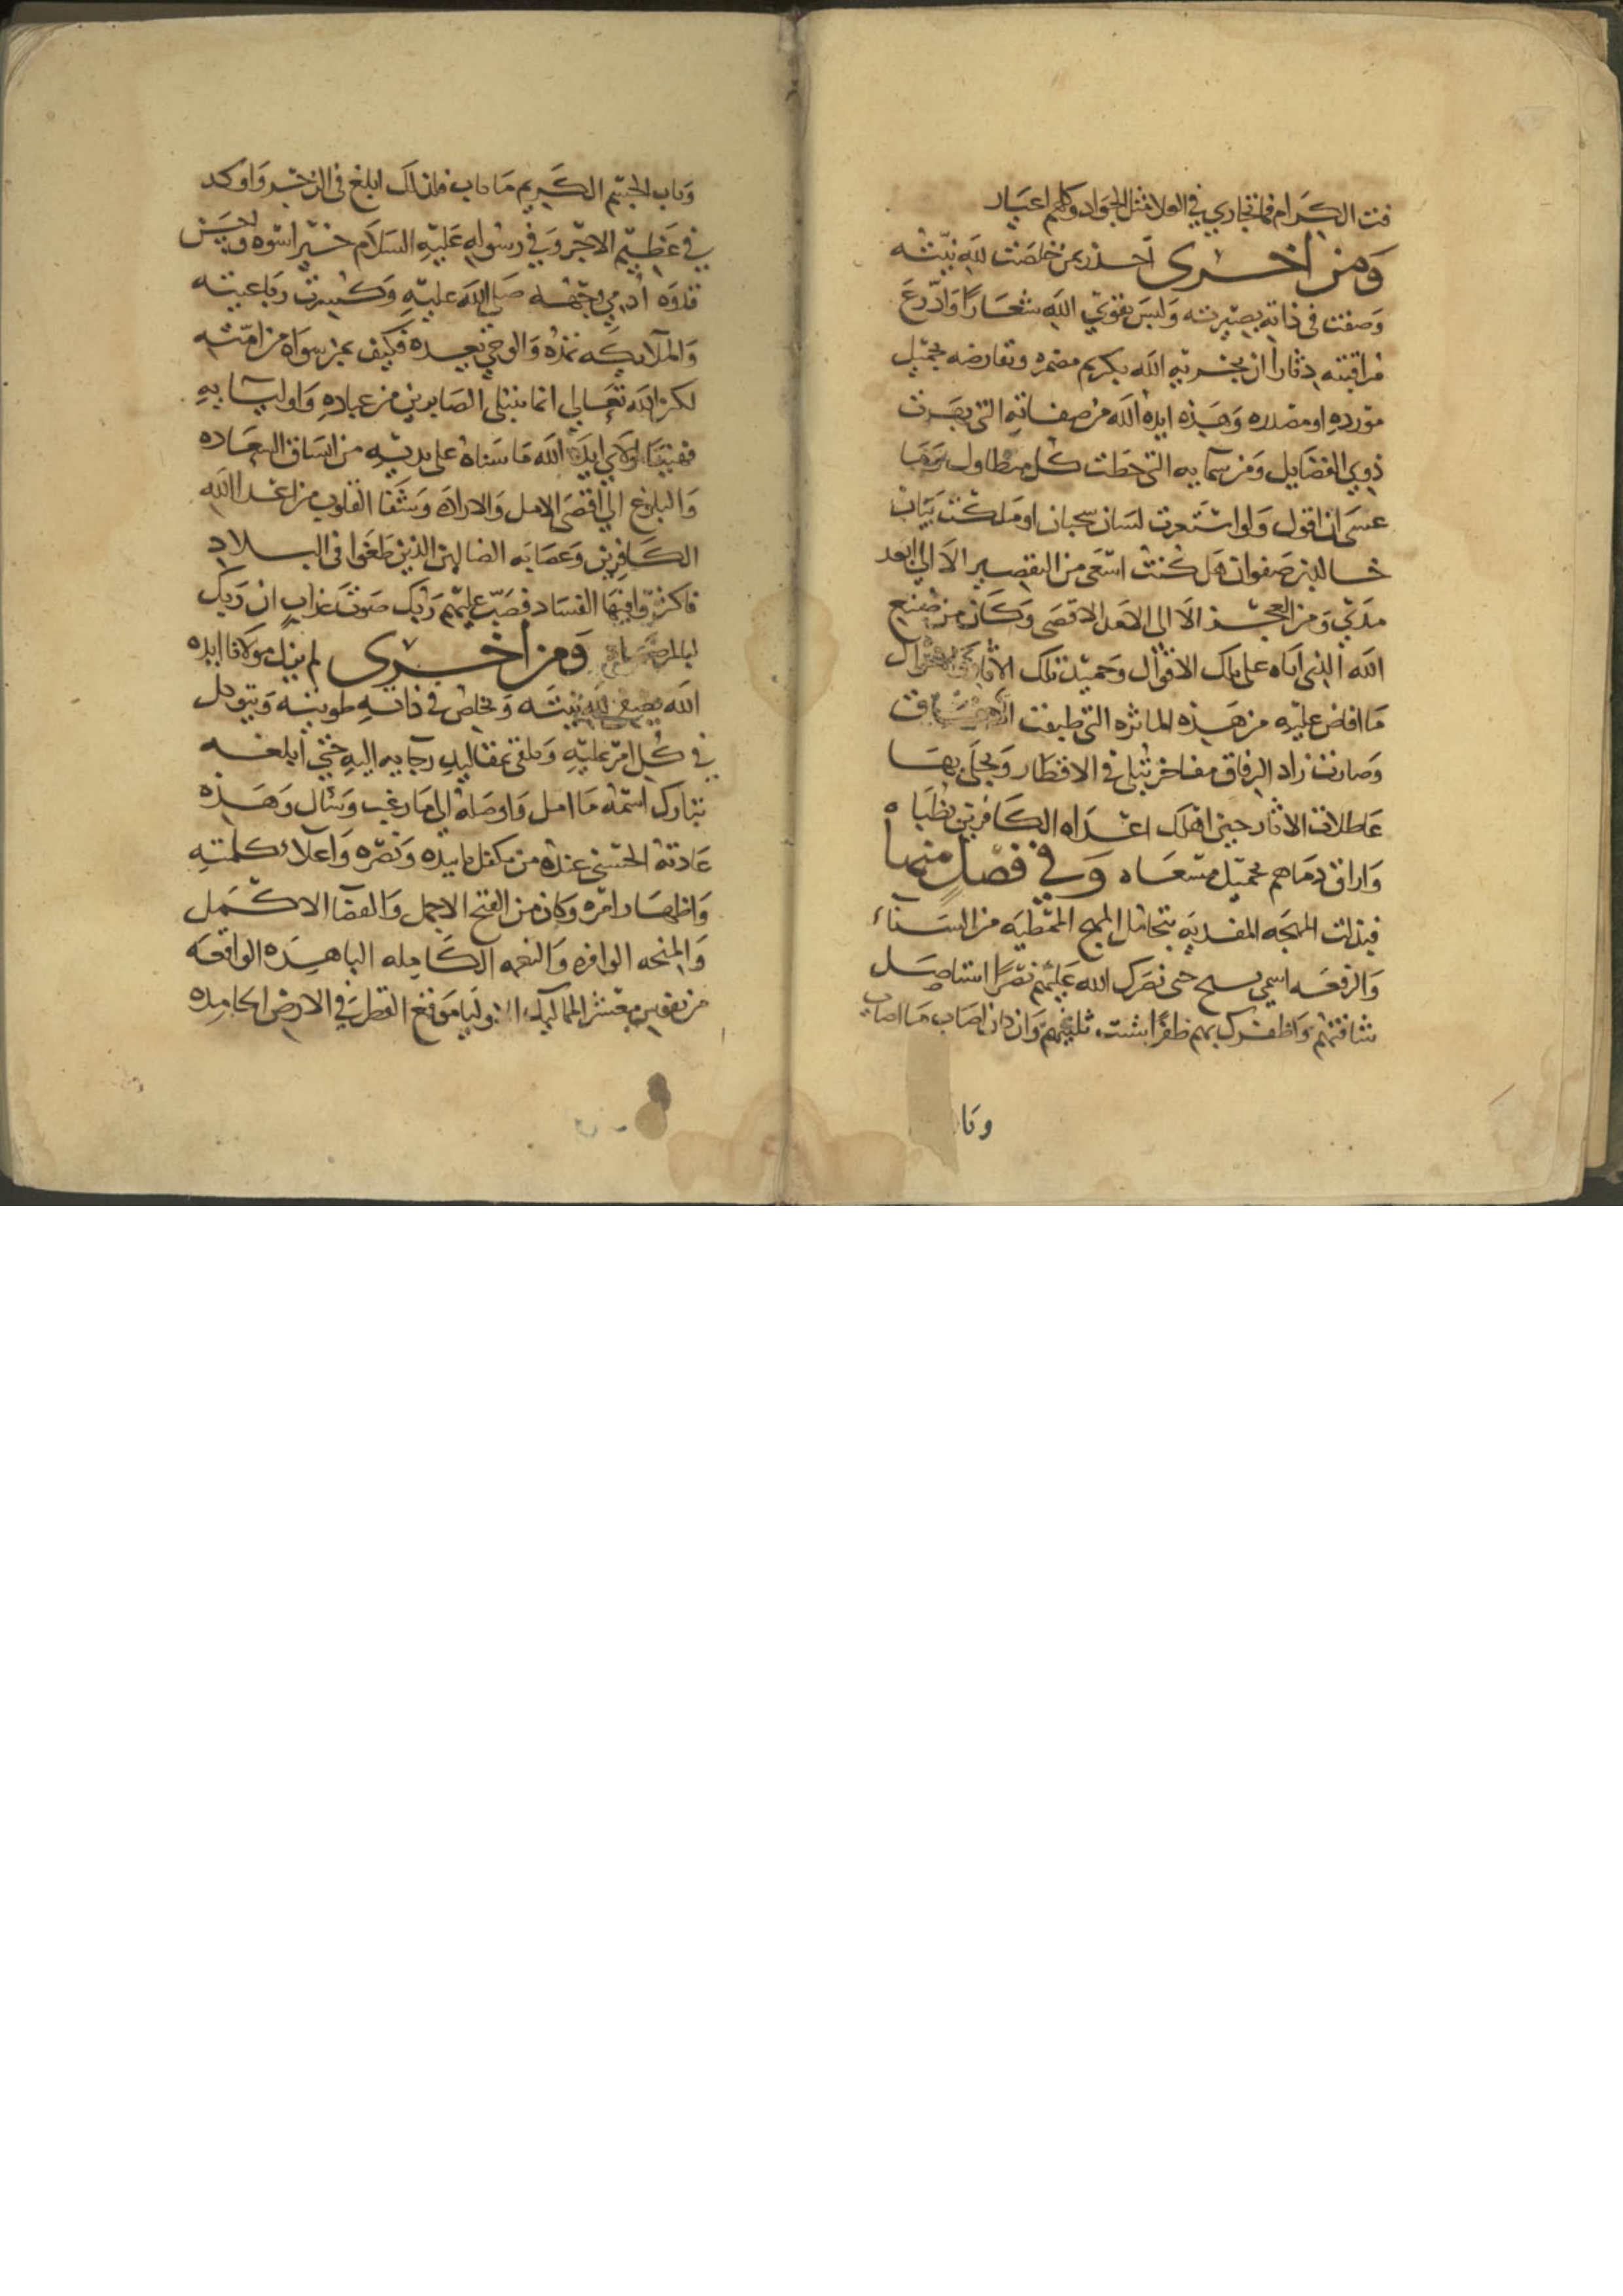 فت الكرام فما تجاري في العلا مثل الجواد وكلهم اعيار
ومن اخرى اجدر بمن خلصت لله نيته
وصفت في ذاته بصيرته ولبس تقوى الله شعارا وادرع
مراقبته دثارا ان يجزيه الله بكريم مضمره ويقارضه بجميل
مورده او مصدره وهذه ايده الله من صفاته التي بهرت
ذوي الفضايل ومن سمآيه التي حطت كل متطاول وما
عسى ان اقول ولو استعرت لسان سحبان او ملكت بيان
خالد بن صفوان هل كنت اسعى من التقصير الا الى ابعد
مدى ومن العجز الا الى الامد الاقصى وكان من صنيع
الله الذي اتاه على تلك الاقوال وحميد تلك
ما افاض عليه من هذه الماثره التي طبقت
وصارت زاد الرفاق مفاخر تتلى في الاقطار ويحلى بها
عاطلات الاثار حين اهلك اعداه الكافرين بظباه
واراق دماهم بجميل مسعاه وفي فصل منها
فبذلت المهجه المفديه بتحامل المهج الممتطيه من السناء
والرفعه اسمى حتى نصرك الله عليهم نصرا استاصل
شافتهم واظفرك بهم ظفرا شتت وان كان اصاب ما اصاب
وناب الجسم الكريم ما ناب فان ذلك ابلغ في الذخر واوكد
في عظيم الاجر وفي رسوله عليه السلام خير اسوه واحسن
قدوه ادمي وجهه صلى الله عليه وكسرت رباعيته
والملايكه تمده والوحي يعده فكيف بمن سواه من امته
لكن الله تعالى انما يبتلى الصابرين من عباده واوليآيه
فهنيا لمولاي ايده الله ما سناه على يديه من اتساق السعاده
والبلوغ الى اقصى الامل والاراده وشفا القلوب من اعدا الله
الكافرين وعصابه الضالين الذين طغوا في البلاد
فاكثروا فيها الفساد فصب عليهم ربك صوت عذاب ان ربك
لبالمرصاد ومن اخرى لم يزل مولانا ايده
الله نيته ويخلص في ذاته طويته ويتوكل
في كل امر عليه ويلقى بمقاليد رجايه اليه حتى ابلغه
تبارك اسمه ما امل واوصله الى ما رغب وسال وهذه
عادته الحسنى عنده من تكفل تاييده ونصره واعلاء كلمته
واظهار امره وكان من الفتح الاجمل والقضا الاكمل
والمنحه الوافره والنعمه الكامله الباهره الواقعه
من نفوس معشر المماليك موقع القطر في الارض الجامده
ونا